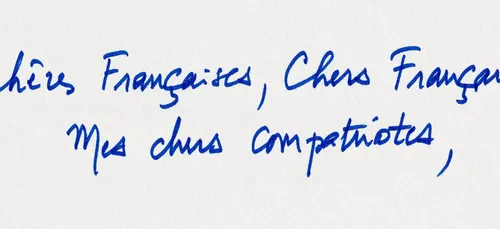 hères Françaises, Chers Françai
Mes chers compatriotes,